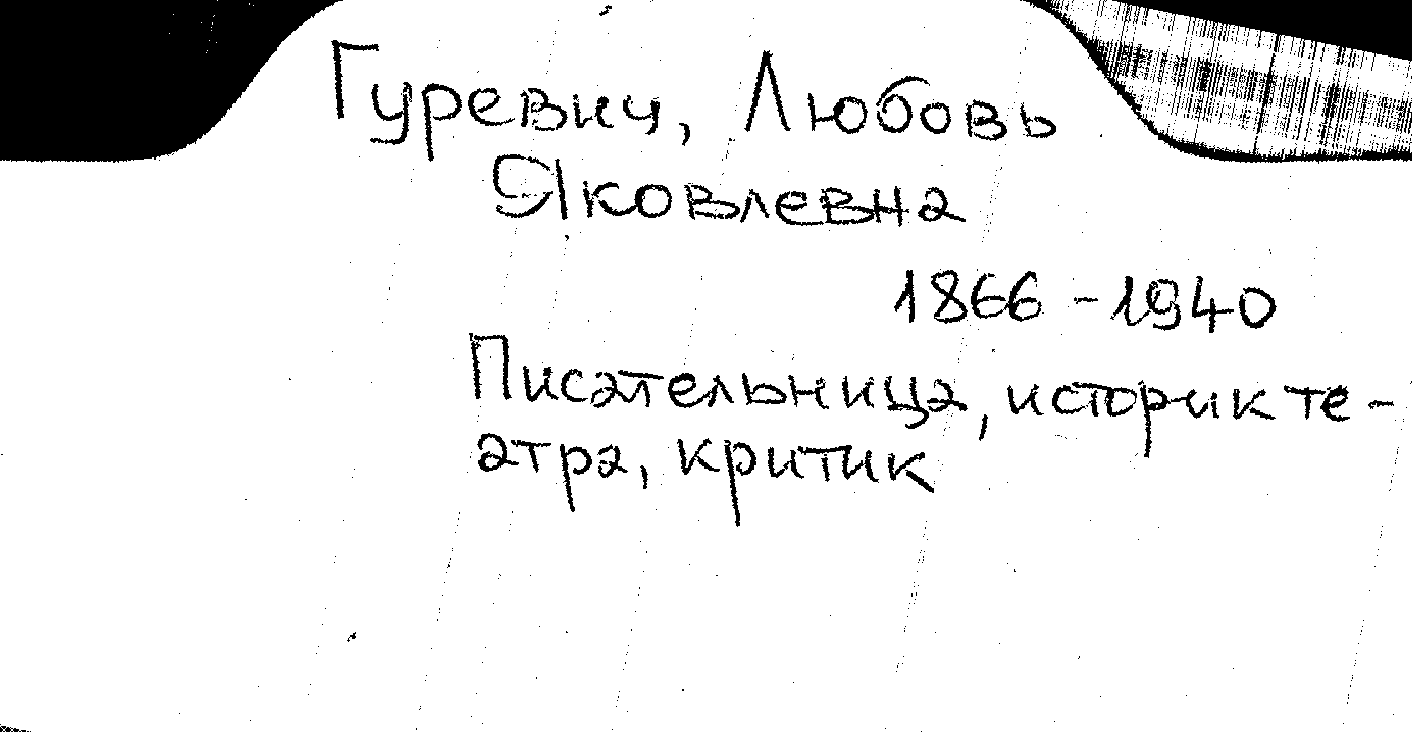 Гуревич, Любовь
Яковлевна
1866 - 1940
Писательница, историк те-
атра, критик